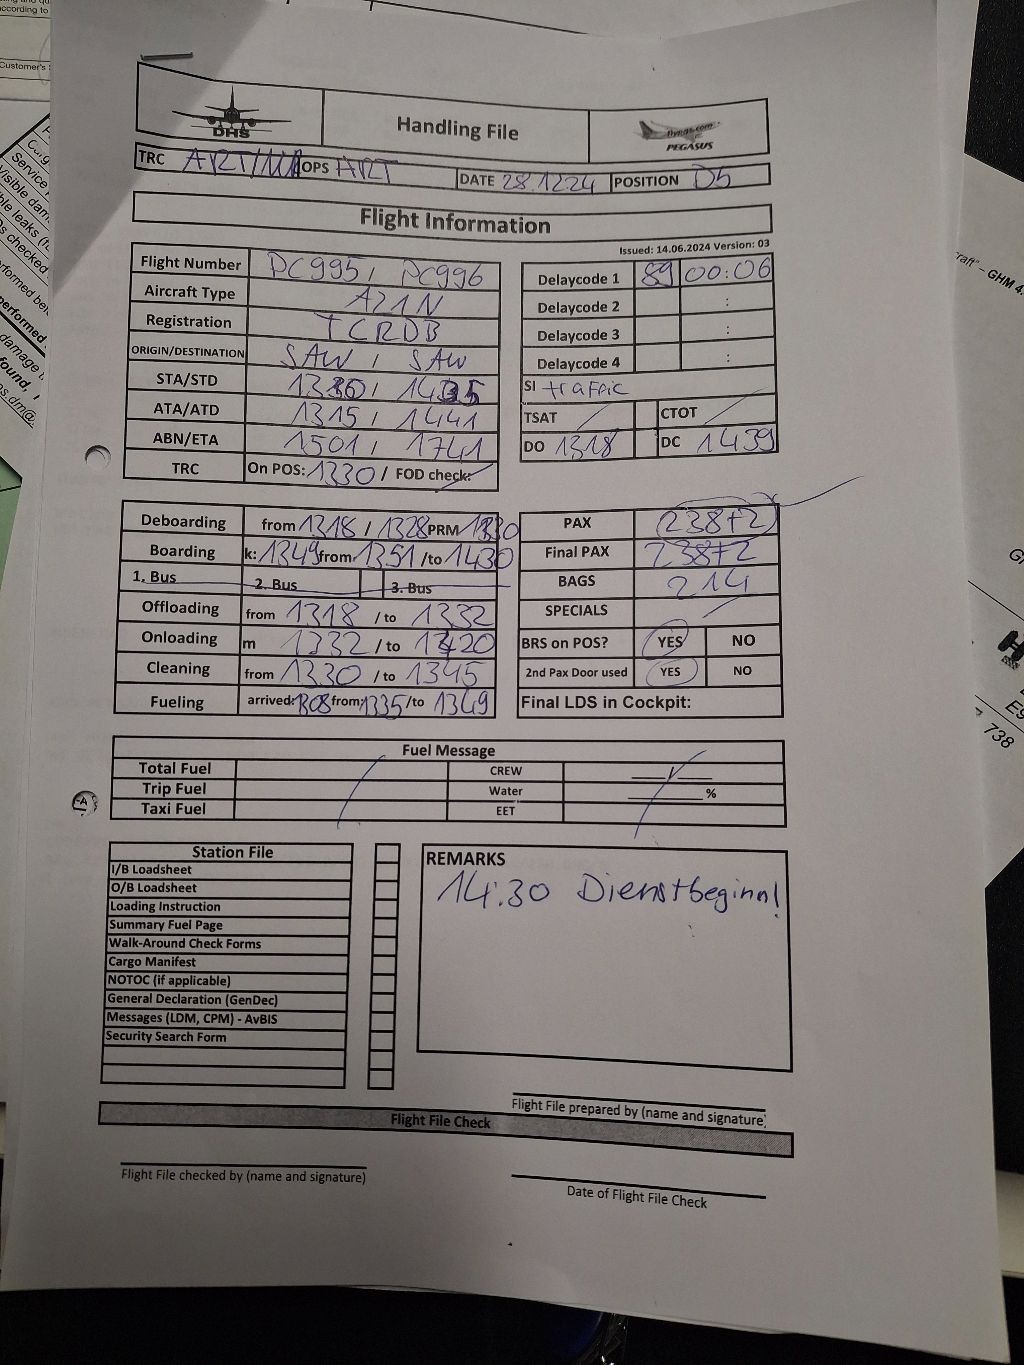 DHS
Handling File
flypgs.com
PEGASUS
TRC OPS ART DATE 28.12.24 POSITION D5
Flight Information
Issued: 14.06.2024 Version: 03
Flight Number PC995 / PC996
Aircraft Type A21N
Registration TCRDB
ORIGIN/DESTINATION SAW / SAW
STA/STD / 1435
ATA/ATD 1315 / 1441
ABN/ETA 1501 / 1741
TRC On POS: 1330 / FOD check:
Delaycode 1 89 00:06
Delaycode 2 :
Delaycode 3 :
Delaycode 4 :
SI traffic
TSAT CTOT
DO 1318 DC 1439
Deboarding from 1318 / 1328 PRM 1330
Boarding k: 1349 from 1351 /to 1430
1. Bus 2. Bus 3. Bus
Offloading from 1318 /to 1332
Onloading m 1332 /to 1420
Cleaning from 1330 /to 1345
Fueling arrived: 1308 from: 1335 /to 1349
PAX 238+2
Final PAX 238+2
BAGS 214
SPECIALS
BRS on POS? YES NO
2nd Pax Door used YES NO
Final LDS in Cockpit:
Fuel Message
Total Fuel CREW ____/____
Trip Fuel Water ________%
Taxi Fuel EET
Station File
I/B Loadsheet
O/B Loadsheet
Loading Instruction
Summary Fuel Page
Walk-Around Check Forms
Cargo Manifest
NOTOC (if applicable)
General Declaration (GenDec)
Messages (LDM, CPM) - AvBIS
Security Search Form
REMARKS
14:30 Dienstbeginn!
Flight File prepared by (name and signature)
Flight File Check
Flight File checked by (name and signature)
Date of Flight File Check
according to
Customer's
Service
performed
damage
found,
raft" – GHM 4.
738